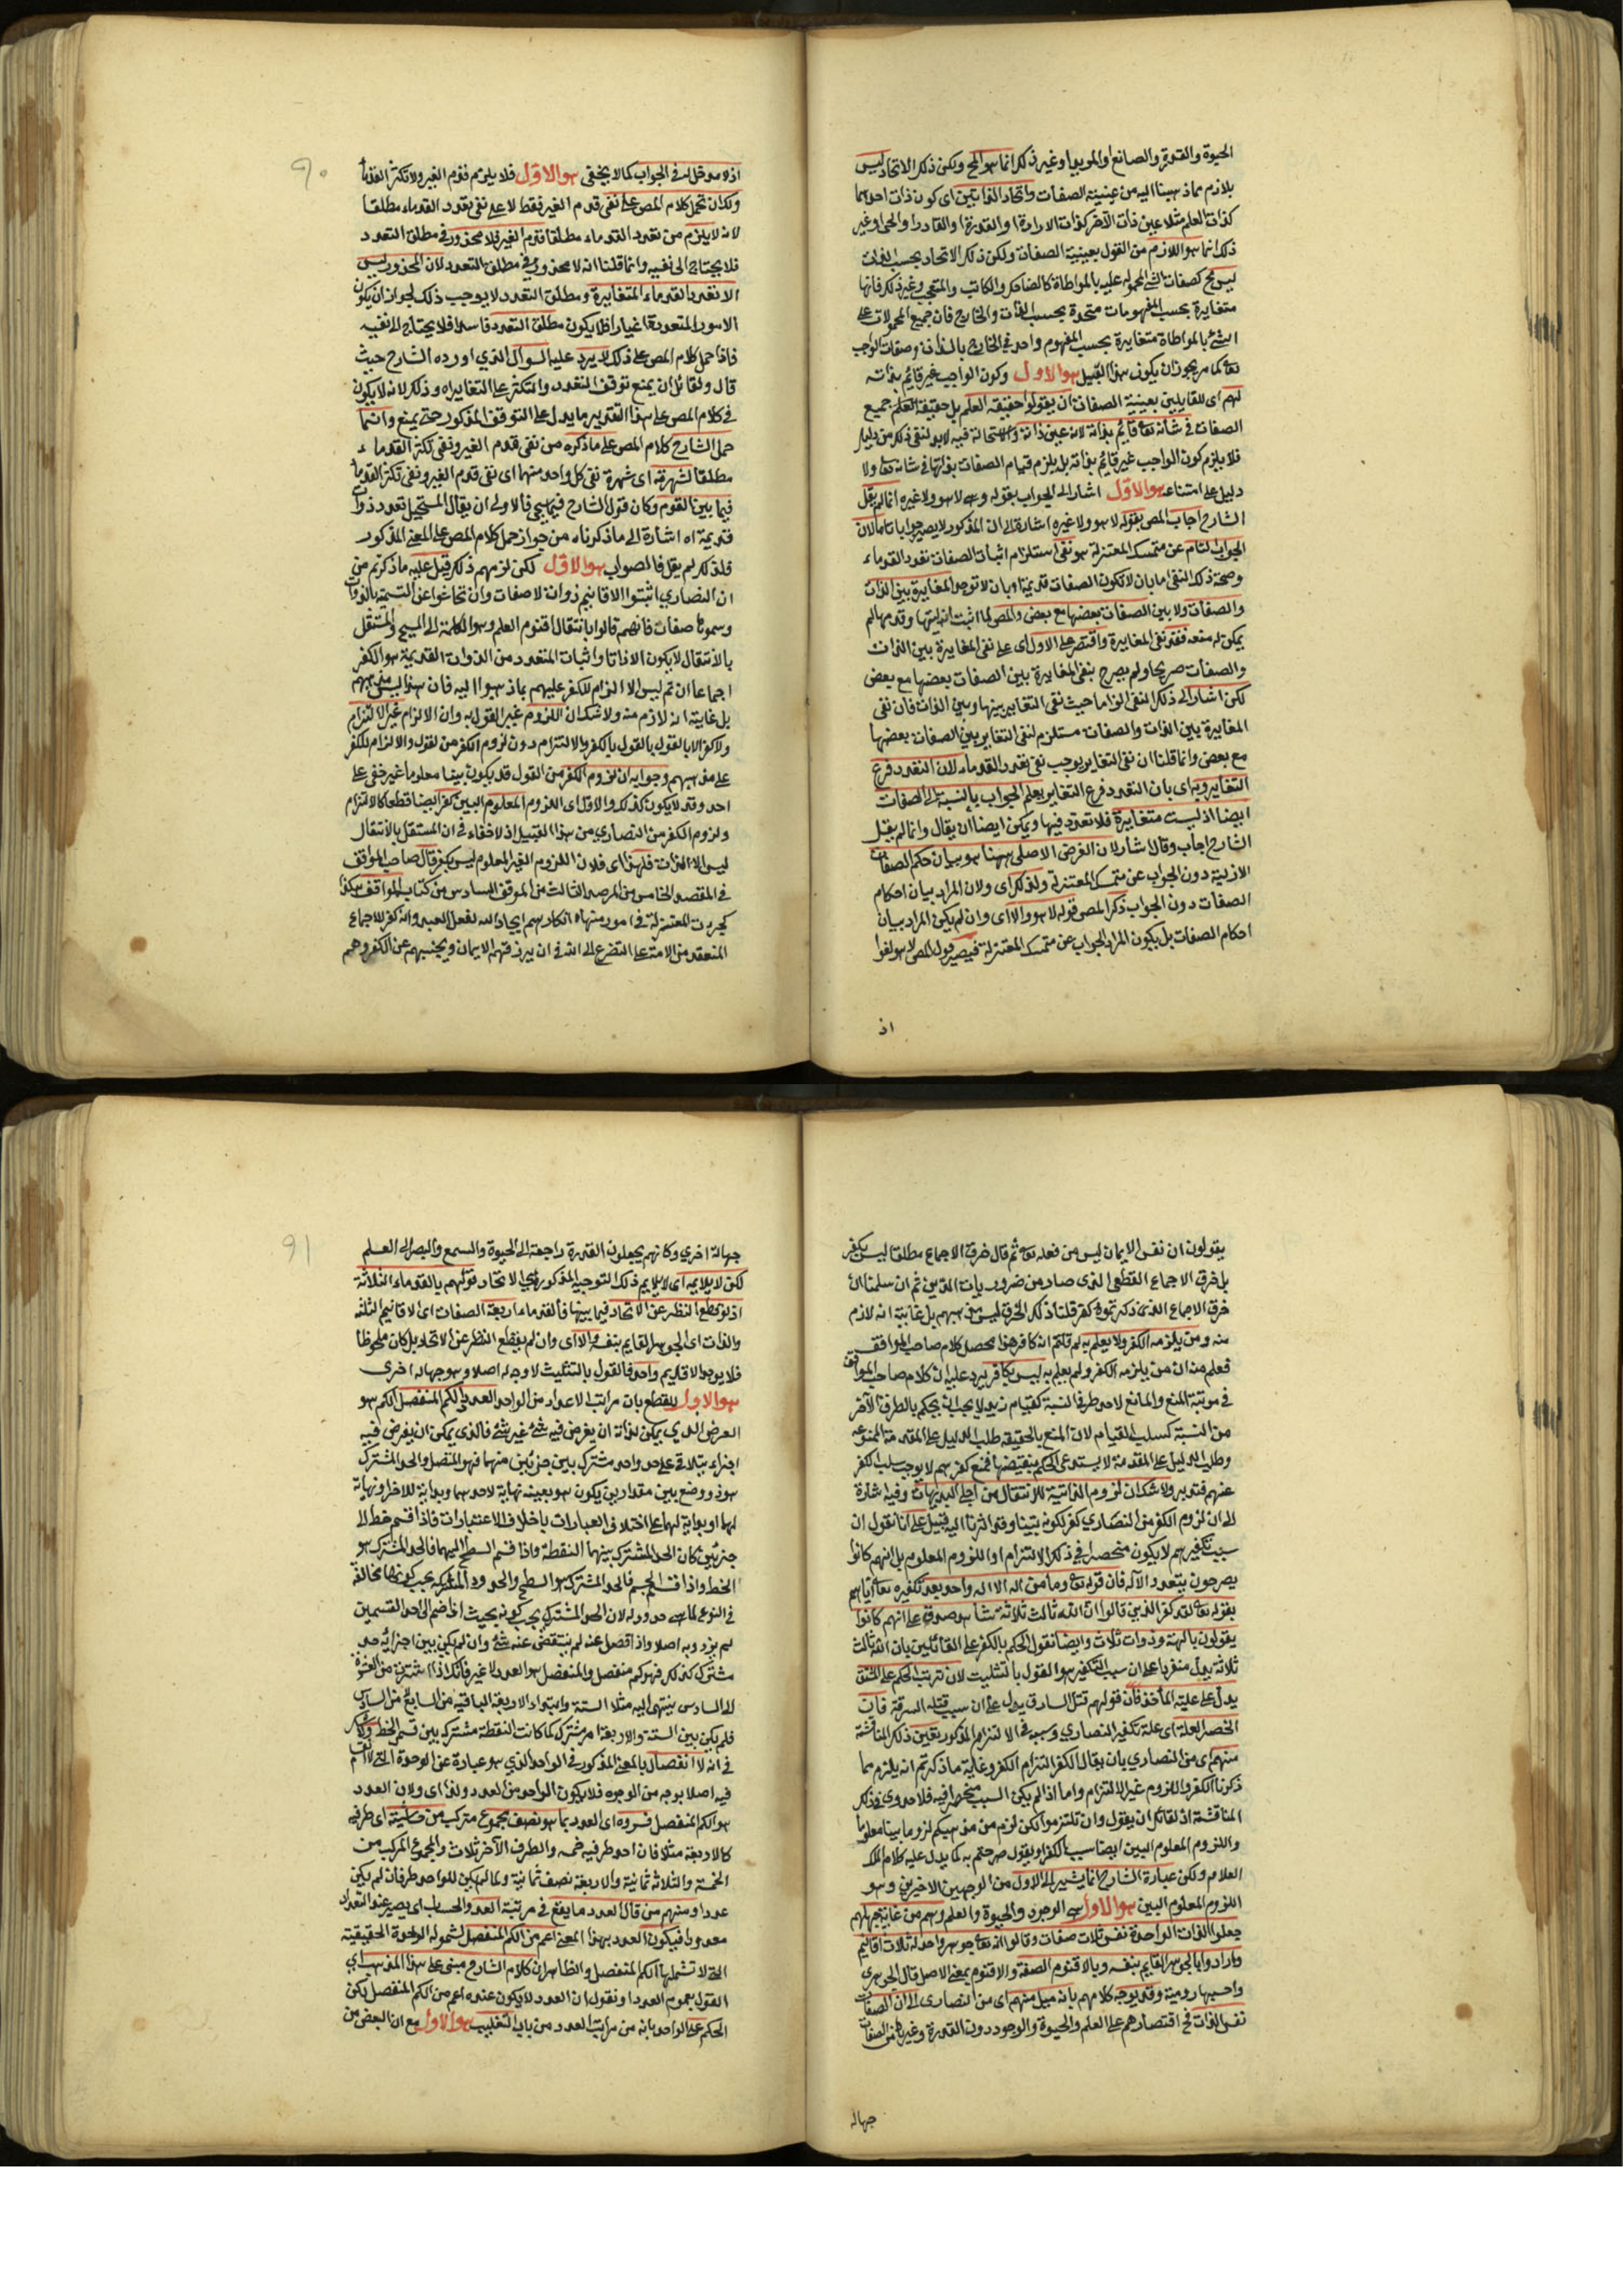 الحيوة والقدرة والصانع او المريد او غير ذلك انما هو المح ولكن ذلك الاتحاد ليس
بلازم مما ذهبنا اليه من عينية الصفات واتحاد الذاتين اى كون ذات احدهما
كذات العلم مثلا عين ذات الآخر كذات الارادة او القدرة او القادر او الحى او غير
ذلك انما هو اللازم من القول بعينية الصفات ولكن ذلك الاتحاد بحسب الذات
ليس مح كصفات الشئ المحمولة عليه بالمواطاة كالضاحك والكاتب والمتعجب وغير ذلك فانها
متغايرة بحسب المفهومات متحدة بحسب الذات والخارج فان جميع المحمولات على
الشئ بالمواطاة متغايرة بحسب المفهوم واحد في الخارج بالذات وصفات الواجب
تعالى كما مر يجوز ان يكون من هذا القبيل هو الاول وكون الواجب غير قائم بذاته
لهم اى للقايلين بعينية الصفات ان يقولوا حقيقة العلم بل حقيقة العلم جميع
الصفات في شأنه تعالى قائم بذاته لانه عين ذاته ولا استحالة فيه لابد لنفى ذلك من دليل
فلا يلزم كون الواجب غير قائم بذاته بل يلزم قيام الصفات بذاتها في شانه تعالى ولا
دليل على امتناعه هو الاول اشار الى الجواب بقوله وهى لا هو ولا غيره انما لم يقل
الشارح اجاب المص بقوله لا هو ولا غيره اشارة الى ان المذكور لا يصير جوابا تاما لان
الجواب التام عن متمسك المعتزلة هو نفى استلزام اثبات الصفات تعدد القدماء
وصحة ذلك النفى اما بان لا تكون الصفات قديمة او بان لا توجد المغايرة بين الذات
والصفات ولا بين الصفات بعضها مع بعض والمص لما اثبت ازليتها وقدمها لم
يمكن له منعه فقد نفى المغايرة واقتصر على الاول اى على نفى المغايرة بين الذات
والصفات صريحا ولم يصرح بنفى المغايرة بين الصفات بعضها مع بعض
لكن اشار الى ذلك النفى الزاما حيث نفى التغاير بينها وبين الذات فان نفى
المغايرة بين الذات والصفات مستلزم لنفى التغاير بين الصفات بعضها
مع بعض وانما قلنا ان نفى التغاير يوجب نفى تعدد القدماء لان التعدد فرع
التغاير وبه اى بان التعدد فرع التغاير يعلم الجواب بالنسبة الى الصفات
ايضا اذ ليست متغايرة فلا تعدد فيها ويمكن ايضا ان يقال وانما لم يقل
الشارح اجاب وقال اشار لان الغرض الاصلى ههنا هو بيان حكم الصفات
الازلية دون الجواب عن متمسك المعتزلة ولذلك اى ولان المراد بيان احكام
الصفات دون الجواب ذكر المص قوله لا هو والا اى وان لم يكن المراد بيان
احكام الصفات بل يكون المراد الجواب عن متمسك المعتزلة فيصير قول المص لا هو لغوا
اذ
٩٠
اذ لا مدخل له في الجواب كما لا يخفى هو الاول فلا يلزم قدم الغير ولا تكثر القدماء
ولك ان تحمل كلام المص على نفى قدم الغير فقط لا على نفى تعدد القدماء مطلقا
لانه لا يلزم من تعدد القدماء مطلقا قدم الغير فلا محذور في مطلق التعدد
فلا يحتاج الى نفيه وانما قلنا انه لا محذور في مطلق التعدد لان المحذور ليس
الا تعدد القدماء المتغايرة ومطلق التعدد لا يوجب ذلك لجواز ان يكون
الامور المتعددة اغيارا فلا يكون مطلق التعدد فاسدا فلا يحتاج الى نفيه
فاذا حمل كلام المص على ذلك لا يرد عليه السوال الذي اورده الشارح حيث
قال ولقائل ان يمنع توقف التعدد والتكثر على التغاير اه وذلك لانه لا يكون
في كلام المص على هذا التقدير ما يدل على التوقف المذكور حتى يمنع وانما
حمل الشارح كلام المص على ما ذكره من نفى قدم الغير ونفى تكثر القدماء
مطلقا لشهرته اى شهرة نفى كل واحد منهما اى نفى قدم الغير ونفى تكثر القدماء
فيما بين القوم وكان قول الشارح فيما سيجئ فالاولى ان يقال المستحيل تعدد ذوات
قديمة اه اشارة الى ما ذكرناه من جواز حمل كلام المص على المعنى المذكور
فلذلك لم يقل فالصواب هو الاول لكن لزمهم ذلك قيل عليه ما ذكرتم من
ان النصارى اثبتوا الاقانيم ذوات لا صفات وان تحاشوا عن التسمية بالذوات
وسموها صفات فانهم قالوا بانتقال اقنوم العلم وهو الكلمة الى المسيح والمستقل
بالانتقال لا يكون الا ذاتا واثبات المتعدد من الذوات القديمة هو الكفر
اجماعا ان تم ليس الا الزام للكفر عليهم بما ذهبوا اليه فان هذا ليس مذهبهم
بل غايته انه لازم منه ولا شك ان اللزوم غير القول به وان الالزام غير الالتزام
ولا كفر الا بالقول بالقول بالكفر والالتزام دون لزوم الكفر من القول والالزام للكفر
على مذهبهم وجوابه ان لزوم الكفر من القول قد يكون بينا معلوما غير خفى على
احد وقد لا يكون كذلك والاول اى اللزوم المعلوم البين كفر ايضا قطعا كالالتزام
ولزوم الكفر من النصارى من هذا القبيل اذ لا خفاء في ان المستقل بالانتقال
ليس الا الذات فلهذا اى فلان اللزوم الغير المعلوم ليس بكفر قال صاحب المواقف
في المقصد الخامس من المرصد الثالث من الموقف السادس من كتاب المواقف هكذا
كفرت المعتزلة في امور منها اه انكارهم ايجاد الله لفعل العبد وانه كفر للاجماع
المنعقد من الامة على التضرع الى الله في ان يرزقهم الايمان ويجنبهم عن الكفر وهم
يقولون ان نفس الايمان ليس من فعله تعالى ثم قال خرق الاجماع مطلقا ليس بكفر
بل خرق الاجماع القطعى الذى صار من ضروريات الدين ثم ان سلمنا ان
خرق الاجماع الذى ذكرتموه كفر قلنا ذلك الخرق ليس مذهبهم بل غايته انه لازم
منه ومن يلزمه الكفر ولا يعلم به لم قلتم انه كافر هذا محصل كلام صاحب المواقف
فعلم منه ان من يلزمه الكفر ولم يعلم به ليس بكافر يرد عليه ان كلام صاحب المواقف
في مرتبة المنع والمانع لاحد طرفى النسبة كقيام زيد لا يجب ان يحكم بالطرف الآخر
من النسبة كسلب القيام لان المنع بالحقيقة طلب الدليل على المقدمة الممنوعة
وطلب الدليل على المقدمة لا يستدعى الحكم بنقيضها فمنع كفرهم لا يوجب سلب الكفر
عنهم فتدبر ولا شك ان لزوم الذاتية للانتقال من اجلى البديهات وفيه اشارة
الى ان لزوم الكفر من النصارى كفر لكونه بينا وقد اشرنا اليه قبيل على انا نقول ان
سبب تكفيرهم لا يكون منحصرا في ذلك الالتزام او اللزوم المعلوم بل انهم كانوا
يصرحون بتعدد الآلهة فان قوله تعالى وما من اله الا اله واحد بعد تكفيره تعالى اياهم
بقوله تعالى لقد كفر الذين قالوا ان الله ثالث ثلاثة شاهد صدق على انهم كانوا
يقولون بآلهة وذوات ثلاث وايضا نقول الحكم بالكفر على القائلين بان الله ثالث
ثلاثة يدل منفردا على ان سبب التكفير هو القول بالتثليث لان ترتيب الحكم على المشتق
يدل على علية المأخذ فان قولهم قتل السارق يدل على ان سبب قتله السرقة فان
انحصر العلة اى علة تكفير النصارى وسببه في الالتزام المذكور يتعين ذلك المناقشة
منهم اى من النصارى بان يقال الكفر التزام الكفر وغاية ما ذكرتم انه يلزم مما
ذكرنا الكفر واللزوم غير الالتزام واما اذا لم يكن السبب منحصرا فيه فلا جدوى في ذلك
المناقشة اذ لقائل ان يقول وان لم تلتزموا لكن لزم من مذهبكم لزوما بينا معلوما
واللزوم المعلوم البين ايضا سبب الكفر او يقول صرحتم به كما يدل عليه كلام الملك
العلام ولكن عبارة الشارح انما يشير الى الاول من الوجهين الاخيرين وهو
اللزوم المعلوم البين هو الاول هى الوجود والحيوة والعلم وهم من غاية جهلهم
جعلوا الذات الواحدة نفس ثلاث صفات وقالوا انه تعالى جوهر واحد له ثلاث اقانيم
وارادوا بالجوهر القايم بنفسه وبالاقنوم الصفة والاقنوم بمعنى الاصل قال الجوهرى
واحسبها رومية وقد يوجه كلامهم بانه ميل منهم اى من النصارى الى ان الصفات
نفس الذات فح اقتصارهم على العلم والحيوة والوجود دون القدرة وغيرها من الصفات
جهالة
٩١
جهالة اخرى وكانهم يجعلون القدرة راجعة الى الحيوة والسمع والبصر الى العلم
لكن لا يلايمه اى لا يلايم ذلك التوجيه المذكور وهى الاتحاد قولهم بالقدماء الثلاثة
اذ لو قطع النظر عن الاتحاد فيما بينها فالقدماء اربعة الصفات اى الاقانيم الثلثة
والذات اى الجوهر القايم بنفسه والا اى وان لم يقطع النظر عن الاتحاد بل كان ملحوظا
فلا يوجد الا قديم واحد فالقول بالتثليث لا وجه له اصلا وهو جهالة اخرى
هو الاول للقطع بان مراتب الاعداد من الواحد العدد الكم المنفصل الكم هو
العرض الذى يمكن لذاته ان يفرض فيه شئ غير شئ فالذى يمكن ان يفرض فيه
اجزاء يتلاقى على حد واحد مشترك بين جزئين منهما فهو المتصل والحد المشترك
هو ذو وضع بين مقدارين يكون هو بعينه نهاية لاحدهما وبداية للاخر او نهاية
لهما او بداية لهما على اختلاف العبارات باختلاف الاعتبارات فاذا قسم خط الى
جزئين كان الحد المشترك بينهما النقطة واذا قسم السطح اليهما فالحد المشترك هو
الخط واذا قسم الجسم فالحد المشترك هو السطح والحدود المشتركة يجب كونها مخالفة
في النوع لما هى حدود له لان الحد المشترك يجب كونه بحيث اذا ضم الى احد القسمين
لم يزدد به اصلا واذا فصل عنه لم ينتقص عنه شئ وان لم يكن بين اجزائه حد
مشترك كذلك فهو كم منفصل والمنفصل هو العدد لا غير فانك اذا اشرت من العشرة
الى السادس ينتهى اليه مثلا الستة وابتداء الاربعة الباقية من السابع لا من السادس
فلم يكن بين الستة والاربعة امر مشترك كما كانت النقطة مشتركة بين قسمى الخط ولا شك
في انه لا انفصال بالمعنى المذكور في الواحد الذي هو عبارة عن الوحدة التى لا انقسام
فيه اصلا بوجه من الوجوه فلا يكون الواحد من العدد ولذا اى ولان العدد
هو الكم المنفصل فسروه اى العدد بما هو نصف مجموع متركب من حاشيته اى طرفيه
كالاربعة مثلا فان احد طرفيه خمسة والطرف الآخر ثلاث والمجموع المركب من
الخمسة والثلاثة ثمانية والاربعة نصف ثمانية ولما لم يكن للواحد طرفان لم يكن
عددا ومنهم من قال العدد ما يقع في مرتبة العد والحساب اى يصير عند التعداد
معدودا فيكون العدد بهذا المعنى اعم من الكم المنفصل لشموله الوحدة الحقيقية
التى لا تشملها الكم المنفصل والظاهر ان كلام الشارح مبنى على هذا المذهب اى
القول بعموم العدد او نقول ان العدد لا يكون عنده اعم من الكم المنفصل لكن
الحكم على الواحد بانه من مراتب العدد من باب التغليب هو الاول مع ان البعض من